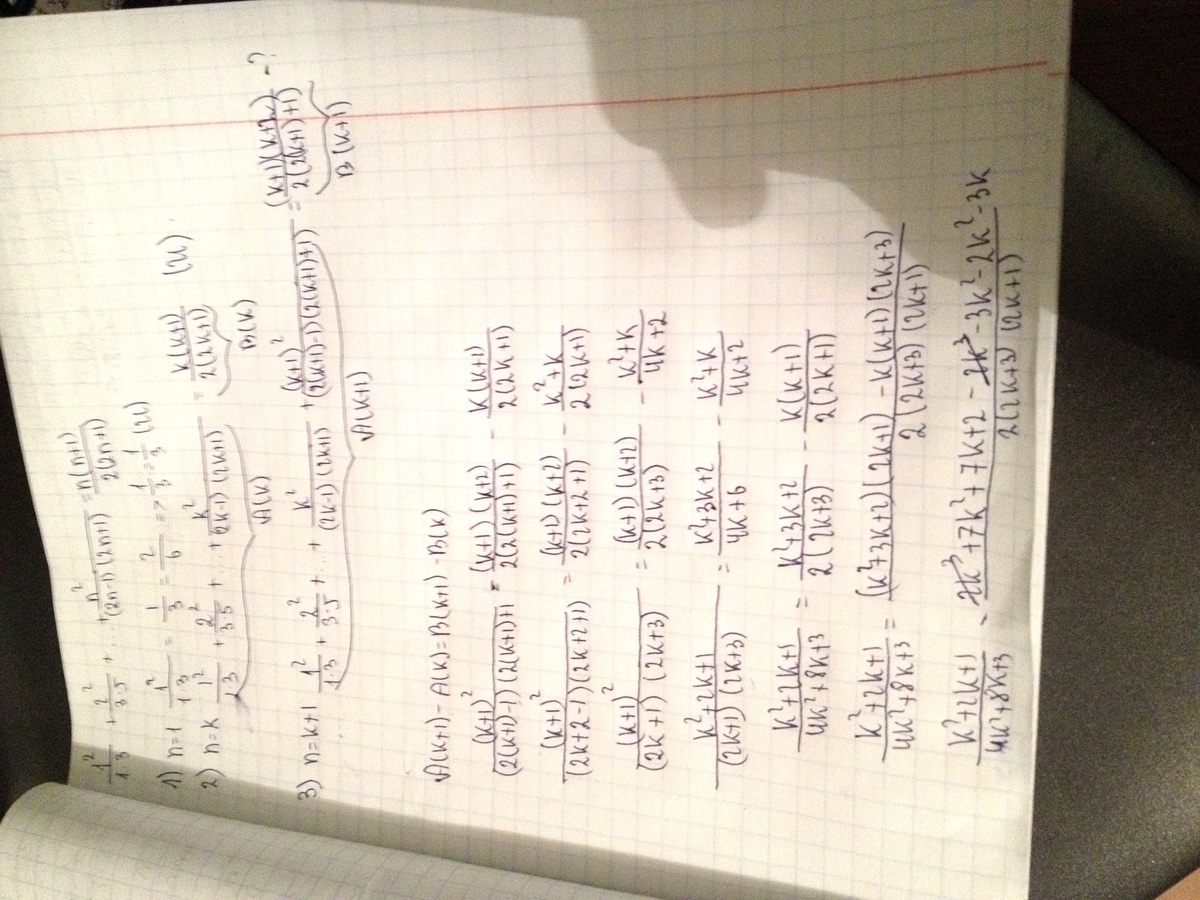 1²/(1·3) + 2²/(3·5) + ... + n²/((2n-1)(2n+1)) = n(n+1)/(2(2n+1))
1) n=1 1²/(1·3) = 1/3 = 2/6 => 1/3 = 1/3 (И)
2) n=k 1²/(1·3) + 2²/(3·5) + ... + k²/((2k-1)(2k+1)) = k(k+1)/(2(2k+1)) (И)
A(k) B(k)
3) n=k+1 1²/(1·3) + 2²/(3·5) + ... + k²/((2k-1)(2k+1)) + (k+1)²/((2(k+1)-1)(2(k+1)+1)) = (k+1)(k+2)/(2(2(k+1)+1)) - ?
A(k+1) B(k+1)
A(k+1) - A(k) = B(k+1) - B(k)
(k+1)²/((2(k+1)-1)(2(k+1)+1 = (k+1)(k+2)/(2(2(k+1)+1) - k(k+1)/(2(2k+1))
(k+1)²/((2k+2-1)(2k+2+1)) = (k+1)(k+2)/(2(2k+2+1)) - k²+k/(2(2k+1))
(k+1)²/((2k+1)(2k+3)) = (k+1)(k+2)/(2(2k+3)) - k²+k/4k+2
k²+2k+1/((2k+1)(2k+3)) = k²+3k+2/4k+6 - k²+k/4k+2
k²+2k+1/4k²+8k+3 = k²+3k+2/(2(2k+3)) - k(k+1)/(2(2k+1))
k²+2k+1/4k²+8k+3 = (k²+3k+2)(2k+1) - k(k+1)(2k+3)/(2(2k+3)(2k+1))
k²+2k+1/4k²+8k+3 = 2k³+7k²+7k+2-2k³-3k²-2k²-3k/(2(2k+3)(2k+1))